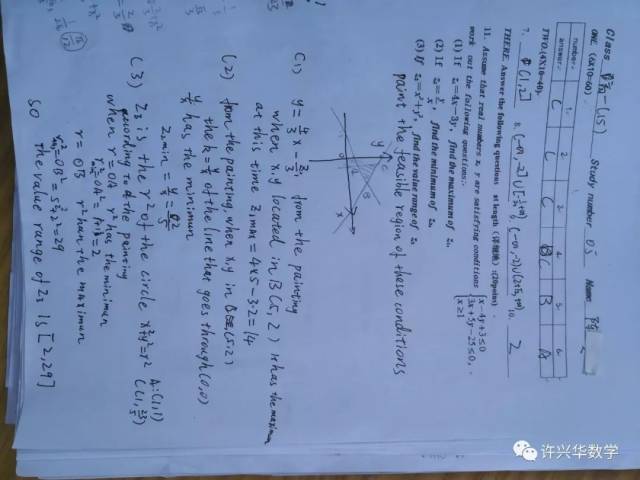 Class 高二-(15) Study number 05 Name:
ONE. (6X10=60).
number. 1 2 3 4 5 6
answer. C C C B
TWO. (4X10=40).
7. (1,2]
10. 2
THERE. Answer the following questions at length (详细地) :(20points)
11. Assume that real numbers x, y are satisfying conditions { x-4y+3≤0 3x+5y-25≤0, x≥1
work out the following questions:
(1) If z₁=4x-3y, find the maximum of z₁.
(2) If z₂=y/x, find the minimum of z₂.
(3) If z₃=x²+y², find the value range of z₃
paint the feasible region of these conditions
y
C
B
A
0
x
(1) y = 4/3 x - z₁/3 from the painting
when x,y located in B(5,2) it has the maximum
at this time z₁max = 4×5-3·2=14
(2) from the painting, when x,y in B(5,2)
the k = y/x of the line that goes through (0,0)
y/x has the minimum
z₂min = y/x = 2/5
(3) Z₃ is the r² of the circle x²+y²=r² A:(1,1)
according to the painting C(1, 22/5)
when r = OA r has the minimum
OA²=1+1=2
r = OB r has the maximum
OB²=5²+2²=29
SO the value range of Z₃ is [2,29]
许兴华数学